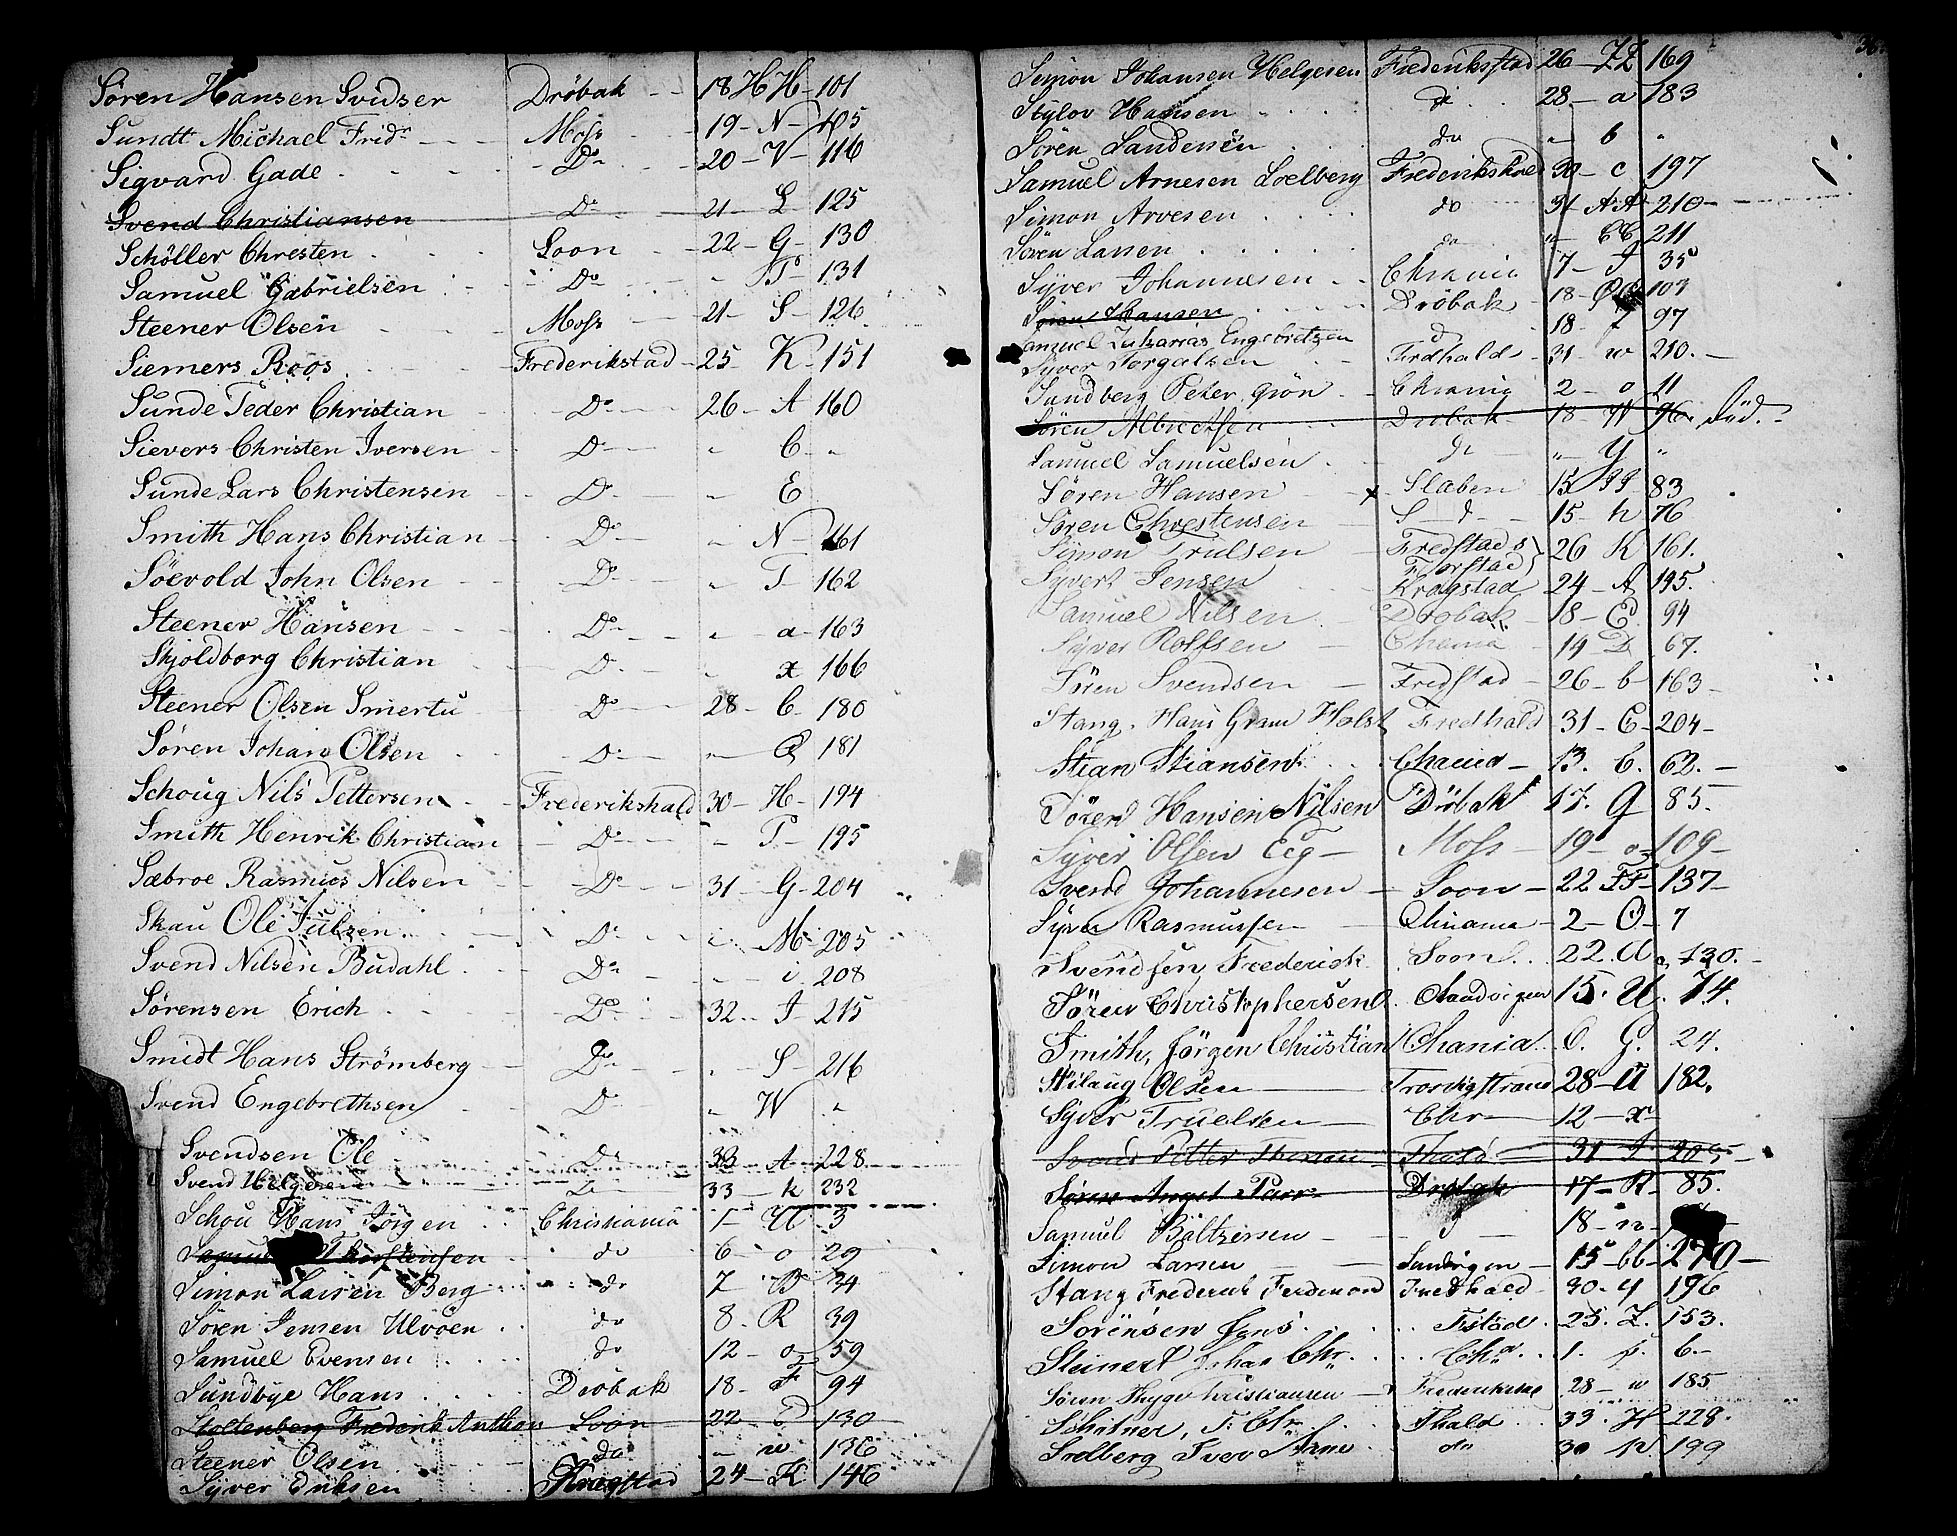 Sören Hansen Svidser Dröbak 18 HH 101
Sundt Michael Fridr Moss 19 - N - 105
Sigvard Gade Do 20 - V - 116
Svend Christiansen Do 21 - L - 125
Schöller Chresten Soon 22 - G - 130
Samuel Gabrielsen Do " T 131
Steener Olsen Moss 21 - S - 126
Siemers Roos Frederikstad 25 - K - 151
Sunde Peder Christian Do 26 - A 160
Sievers Christen Iversen Do " C "
Sunde Lars Christensen Do " E
Smith Hans Christian Do " N 161
Söevold John Olsen Do " T 162
Steener Hansen Do " a 163
Skjoldborg Christian Do " x 166
Steener Olsen Smertu Do 28 - C - 180
Sören Johan Olsen Do " Q 181
Schoug Nils Pettersen Frederikshald 30 - H - 194
Smith Henrik Christian Do " P - 195
Sæbroe Rasmus Nilsen Do 31 - G - 204
Skau Ole Julsen Do " M 205
Svend Nilsen Budahl Do " i 208
Sörensen Erich Do 32 - I - 215
Smidt Hans Strömberg Do " S - 216
Svend Engebrethsen Do " W "
Svendsen Ole Do 33 - A - 228
Svend Helgesen Do 33 - k 232
Schou Hans Jörgen Christiania 1 - U 3
Thorstensen do 6 - o 29
Simon Larsen Berg do 7 B 34
Sören Jensen Ulvöen do 8 - R 39
Samuel Evensen do 12 - o 59
Sundbye Hans Dröbak 18 - F 94
Stoltenberg Frederik Anthon Soon 22 - 130
Steener Olsen do - w - 136
Syver Eriksen Kragstad 24 - K - 146
Simon Johansen Helgesen Frederiksstad 26 - ZZ 169
Stylov Hansen do 28 - a 183
Sören Sandersen do " b "
Samuel Arnesen Loelberg Frederikshald 30 - c 197
Simon Arvesen do 31 - AA 210
Sören Larsen do " CC 211
Syver Johannesen Chrania 7 - I 35
Sören Hansen Dröbak 18 - 103
Samuel Zakarias Engebretzen d 18 - 97
Syver Torgalsen Frdhald 31 - w 210.
Sundberg Peter Grön Chrania 2 - o 11
Sören Albretsen Dröbak 18 - W 96. Död.
Samuel Samuelsen do " y "
Sören Hansen x Slæben 15 83
Sören Chrestensen S - d 15 - h 76
Simon Trulsen Fredstad 26 K 161.
Syvert Jensen Kragstad 24 - A 145.
Samuel Nilsen Dröbak 18 - E 94
Syver Rolfsen Chania 14 D 67.
Sören Svendsen Fredstad 26 - b 163
Stang, Hans Gram Holst Fredhald 31 - C - 204
Stian Stiansen Chania 13. b. 62.
Sören Hansen Nilsen Dröbak 17. Q 85.
Syver Olsen Eeg Moss 19 - o 109
Svend Johannesen Soon 22 FF 137
Syver Rasmussen Chrania 2 - O - 7
Svendsen, Frederick Soon 22. A 130.
Sören Christophersen Saadvigen 15. U. 74.
Smith, Jörgen Christian Chania G. 24.
Stilaug Olsen 28 - U 182.
Syver Truelsen Chr 12 - x
Svend Petter Fhald 31 -
Sören Angel Parr Dröbak 17 - R - 85.
Samuel Baltzersen d 18 - n
Simon Larsen Sandvigen 15 - bb 270
Stang Frederik Ferdinand Fredhald 30. y 196
Sörensen Jens Fstad 25. Z. 153.
Steinert Johan Chr. Cha. 1. p. 6.
Sören Thyge Christiansen 28 - w 185
Schitner, F. Chr. Fhald 33. H 228.
Solberg Iver Arne do 30 199